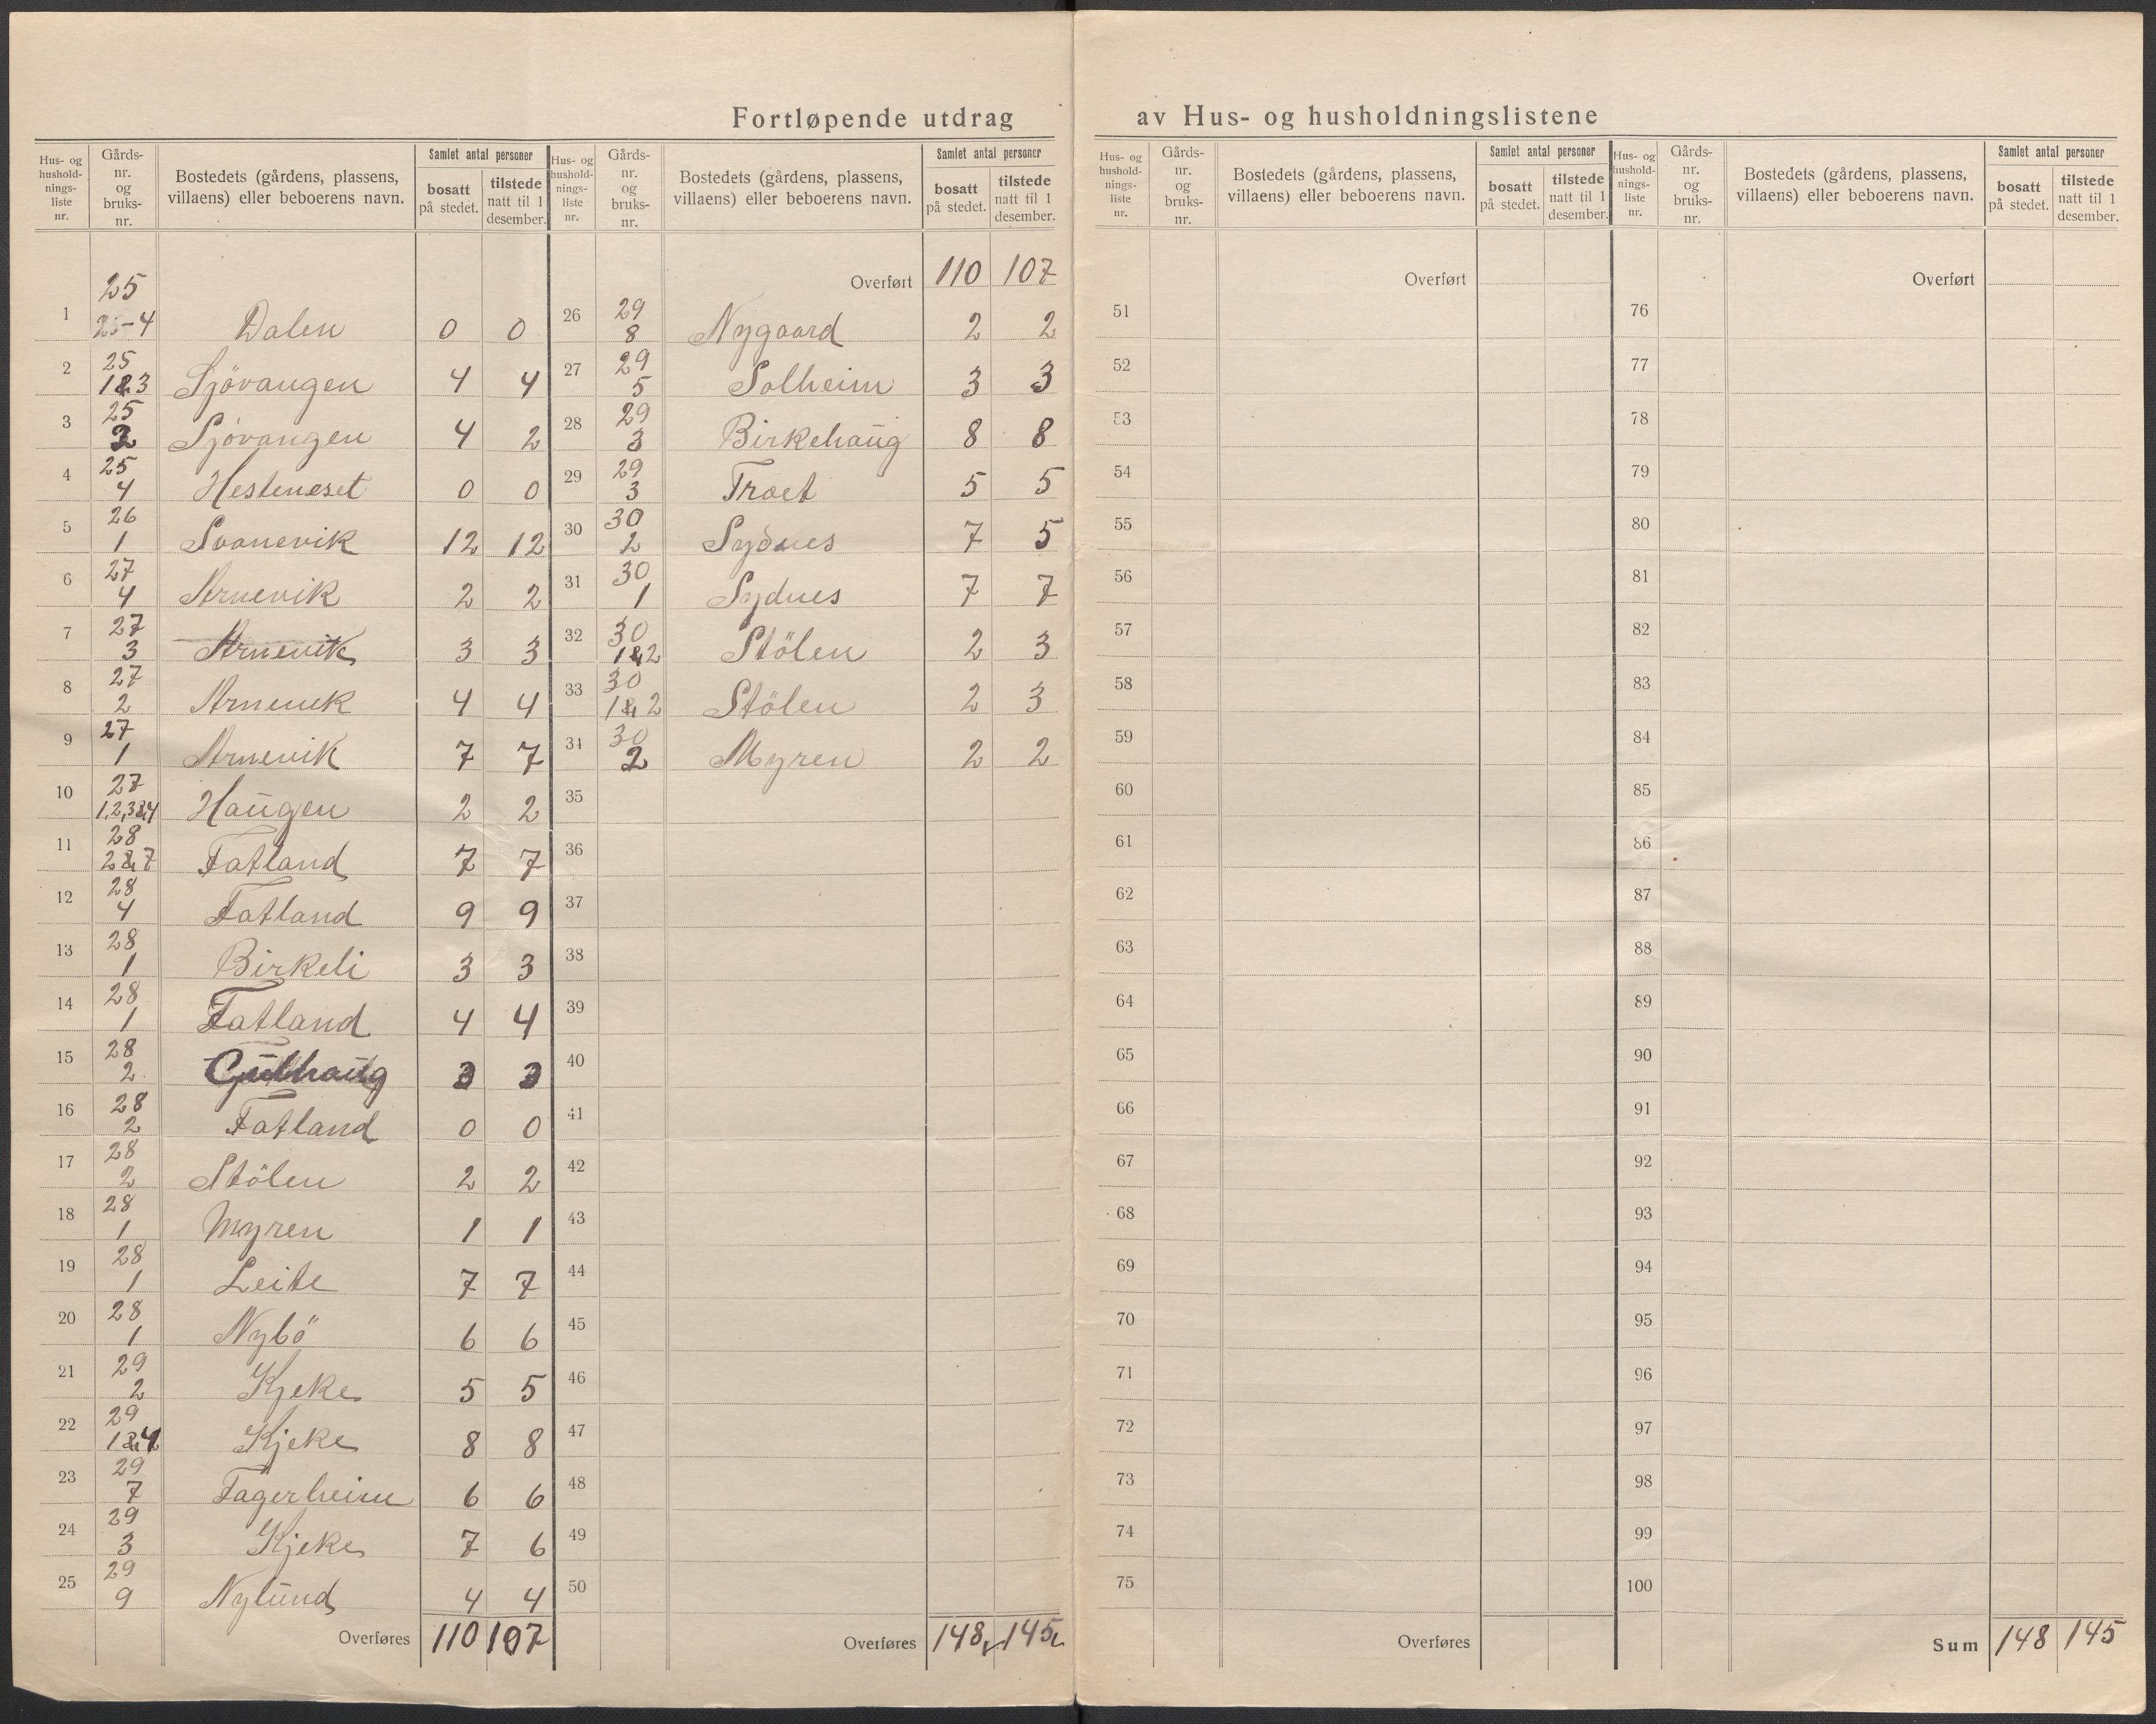 Fortløpende utdrag av Hus- og husholdningslistene
Hus- og hushold-nings-liste nr. Gårds-nr. og bruks-nr. Bostedets (gårdens, plassens, villaens) eller beboerens navn. Samlet antal personer bosatt på stedet. tilstede natt til 1 desember.
1 25 25-4 Dalen 0 0
2 25 1&3 Sjövangen 4 4
3 25 2 Sjövangen 4 2
4 25 4 Hesteneset 0 0
5 26 1 Svanevik 12 12
6 27 4 Arnevik 2 2
7 27 3 Arnevik 3 3
8 27 2 Arnevik 4 4
9 27 1 Arnevik 7 7
10 27 1,2,3&4 Haugen 2 2
11 28 2&7 Fatland 7 7
12 28 4 Fatland 9 9
13 28 1 Birkeli 3 3
14 28 1 Fatland 4 4
15 28 2 Gullhaug 3 3
16 28 2 Fatland 0 0
17 28 2 Stölen 2 2
18 28 1 Myren 1 1
19 28 1 Leite 7 7
20 28 1 Nybö 6 6
21 29 2 Kjeke 5 5
22 29 1&4 Kjeke 8 8
23 29 7 Fagerheim 6 6
24 29 3 Kjeke 7 6
25 29 9 Nylund 4 4
Overføres 110 107
Hus- og hushold-nings-liste nr. Gårds-nr. og bruks-nr. Bostedets (gårdens, plassens, villaens) eller beboerens navn. Samlet antal personer bosatt på stedet. tilstede natt til 1 desember.
Overført 110 107
26 29 8 Nygaard 2 2
27 29 5 Solheim 3 3
28 29 3 Birkehaug 8 8
29 29 3 Træet 5 5
30 30 2 Sydnes 7 5
31 30 1 Sydnes 7 7
32 30 1&2 Stölen 2 3
33 30 1&2 Stölen 2 3
34 30 2 Myren 2 2
35
36
37
38
39
40
41
42
43
44
45
46
47
48
49
50
Overføres 148 145
Hus- og hushold-nings-liste nr. Gårds-nr. og bruks-nr. Bostedets (gårdens, plassens, villaens) eller beboerens navn. Samlet antal personer bosatt på stedet. tilstede natt til 1 desember.
Overført
51
52
53
54
55
56
57
58
59
60
61
62
63
64
65
66
67
68
69
70
71
72
73
74
75
Overføres
Hus- og hushold-nings-liste nr. Gårds-nr. og bruks-nr. Bostedets (gårdens, plassens, villaens) eller beboerens navn. Samlet antal personer bosatt på stedet. tilstede natt til 1 desember.
Overført
76
77
78
79
80
81
82
83
84
85
86
87
88
89
90
91
92
93
94
95
96
97
98
99
100
Sum 148 145